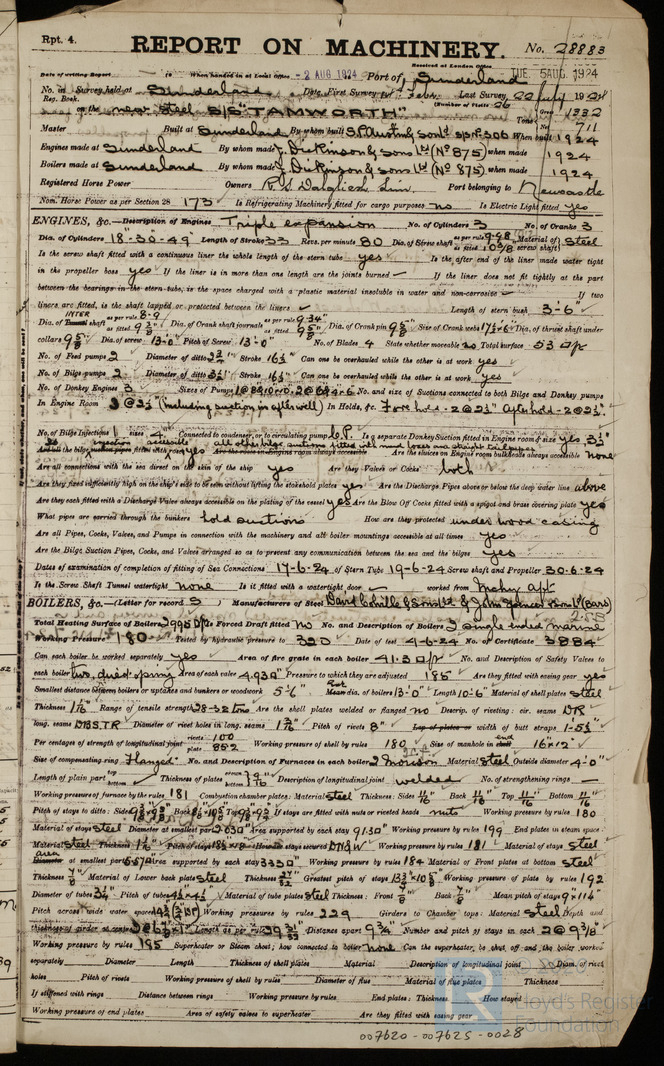 Rpt. 4. REPORT ON MACHINERY. No. 28883
Received at London Office TUE. 5 AUG. 1924
Date of writing Report 19 When handed in at Local Office 2 AUG 1924 Port of Sunderland
No. in Survey held at Sunderland Date, First Survey Last Survey 22 July 1924
Reg. Book. (Number of Visits 26
on the new Steel S/S "TAMWORTH" Tons Gross 1332 Net 711
Master Built at Sunderland By whom built S.P. Austin & Sons Ld S/S No 306 When built 1924
Engines made at Sunderland By whom made J. Dickinson & Sons Ld (No 875) when made 1924
Boilers made at Sunderland By whom made J. Dickinson & Sons Ld (No 875) when made 1924
Registered Horse Power Owners Port belonging to Newcastle
Nom. Horse Power as per Section 28 173 Is Refrigerating Machinery fitted for cargo purposes no Is Electric Light fitted yes
ENGINES, &c.—Description of Engines Triple expansion No. of Cylinders 3 No. of Cranks 3
Dia. of Cylinders 18"-30"-49" Length of Stroke 33 Revs. per minute 80 Dia. of Screw shaft as per rule 9.98 as fitted 10 3/8 Material of screw shaft Steel
Is the screw shaft fitted with a continuous liner the whole length of the stern tube yes Is the after end of the liner made water tight
in the propeller boss yes If the liner is in more than one length are the joints burned If the liner does not fit tightly at the part
between the bearings in the stern tube, is the space charged with a plastic material insoluble in water and non-corrosive If two
liners are fitted, is the shaft lapped or protected between the liners Length of stern bush 3'-6"
Dia. of Tunnel shaft INTER as per rule 8.9 as fitted 9 3/8 Dia. of Crank shaft journals as per rule 9.34" as fitted 9 5/8 Dia. of Crank pin 9 5/8 Size of Crank webs 17 1/2 x 6 Dia. of thrust shaft under
collars 9 5/8 Dia. of screw 13'-0" Pitch of Screw 13'-0" No. of Blades 4 State whether moveable no Total surface 53
No. of Feed pumps 2 Diameter of ditto Stroke 16 1/2" Can one be overhauled while the other is at work yes
No. of Bilge pumps 2 Diameter of ditto 3 1/2" Stroke 16 1/2" Can one be overhauled while the other is at work yes
No. of Donkey Engines 3 Sizes of Pumps No. and size of Suctions connected to both Bilge and Donkey pumps
In Engine Room 3 @ 2 1/2" (including suction in after well) In Holds, &c. Fore hold - 2 @ 2 1/2" After hold - 2 @ 2 1/2".
No. of Bilge Injections 1 sizes 4" Connected to condenser, or to circulating pump C.P. Is a separate Donkey Suction fitted in Engine room & size yes, 3 1/2"
Are the sluices on Engine room bulkheads always accessible none
Are all connections with the sea direct on the skin of the ship yes Are they Valves or Cocks both
Are they fixed sufficiently high on the ship's side to be seen without lifting the stokehold plates yes Are the Discharge Pipes above or below the deep water line above
Are they each fitted with a Discharge Valve always accessible on the plating of the vessel yes Are the Blow Off Cocks fitted with a spigot and brass covering plate yes
What pipes are carried through the bunkers hold suctions How are they protected under wood casing
Are all Pipes, Cocks, Valves, and Pumps in connection with the machinery and all boiler mountings accessible at all times yes
Are the Bilge Suction Pipes, Cocks, and Valves arranged so as to prevent any communication between the sea and the bilges yes
Dates of examination of completion of fitting of Sea Connections 17-6-24 of Stern Tube 19-6-24 Screw shaft and Propeller 30-6-24
Is the Screw Shaft Tunnel watertight none Is it fitted with a watertight door worked from Mchy aft
BOILERS, &c.—(Letter for record S ) Manufacturers of Steel David Colville & Sons Ld & John Spencer & Sons Ld (Bars)
Total Heating Surface of Boilers 2990 Is Forced Draft fitted no No. and Description of Boilers 2 single ended marine
Working Pressure 180 Tested by hydraulic pressure to 320 Date of test 4-6-24 No. of Certificate 3884
Can each boiler be worked separately yes Area of fire grate in each boiler 41.3 No. and Description of Safety Valves to
each boiler two, direct spring Area of each valve 4.93 Pressure to which they are adjusted 185 Are they fitted with easing gear yes
Smallest distance between boilers or uptakes and bunkers or woodwork 5'-6" Mean dia. of boilers 13'-0" Length 10'-6" Material of shell plates Steel
Thickness Range of tensile strength 28-32 tons Are the shell plates welded or flanged no Descrip. of riveting: cir. seams DR
long. seams DBSTR Diameter of rivet holes in long. seams Pitch of rivets 8" Lap of plates or width of butt straps 1'-5 1/2"
Per centages of strength of longitudinal joint rivets 100 plate 85.2 Working pressure of shell by rules 180 Size of manhole in end 16" x 12"
Size of compensating ring Flanged No. and Description of Furnaces in each boiler 2 Morison Material Steel Outside diameter 4'-0"
Length of plain part top bottom Thickness of plates crown bottom Description of longitudinal joint welded No. of strengthening rings
Working pressure of furnace by the rules 181 Combustion chamber plates: Material steel Thickness: Sides 11/16 Back 11/16 Top 11/16 Bottom 11/16
Pitch of stays to ditto: Sides Back Top If stays are fitted with nuts or riveted heads nuts Working pressure by rules 180
Material of stays steel Diameter at smallest part 2.030" Area supported by each stay 91.30" Working pressure by rules 199 End plates in steam space:
Material steel Thickness Pitch of stays How are stays secured DN&W Working pressure by rules 181 Material of stays steel
area at smallest part 5.57 Area supported by each stay 333 Working pressure by rules 184 Material of Front plates at bottom steel
Thickness 7/8 Material of Lower back plate Steel Thickness 27/32 Greatest pitch of stays Working pressure of plate by rules 192
Diameter of tubes 3 1/4" Pitch of tubes Material of tube plates Steel Thickness: Front 7/8 Back Mean pitch of stays
Pitch across wide water spaces Working pressures by rules 229 Girders to Chamber tops: Material Steel Depth and
thickness of girder at centre Length as per rule Distance apart 9 3/4" Number and pitch of stays in each 2 @ 9 3/8"
Working pressure by rules 195 Superheater or Steam chest; how connected to boiler none Can the superheater be shut off and the boiler worked
separately Diameter Length Thickness of shell plates Material Description of longitudinal joint Diam. of rivet
holes Pitch of rivets Working pressure of shell by rules Diameter of flue Material of flue plates Thickness
If stiffened with rings Distance between rings Working pressure by rules End plates: Thickness How stayed
Working pressure of end plates Area of safety valves to superheater Are they fitted with easing gear
© 2020
Lloyd's Register
Foundation
007620-007625-0028